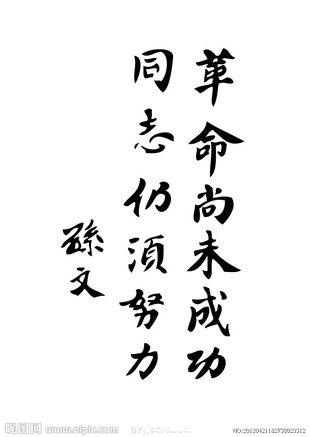 革命尚未成功
同志仍須努力
孫文
昵图网 www.nipic.com
NO:20120421182738023312